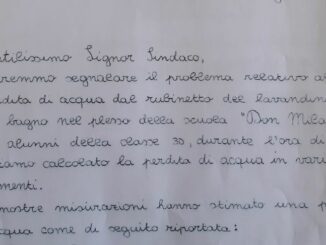 ntilissimo Signor Sindaco,
remmo segnalare il problema relativo al
dita di acqua dal rubinetto del lavandin
bagno nel plesso della scuola "Don Mila
alunni della classe 3D, durante l'ora d
amo calcolato la perdita di acqua in var
menti.
nostre misurazioni hanno stimato una p
cqua come di seguito riportata: